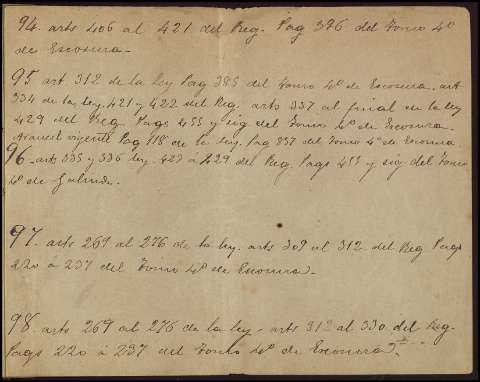 94. arts 406 al 421 del Reg. Pag 396 del Tomo 4º
de Escosura.
95 art 312 de la ley Pag 385 del Tomo 4º de Escosura. art
334 de la ley. 421 y 422 del Reg. arts 337 al final de la ley
429 del Reg Pags 455 y sig del Tomo 4º de Escosura.
Arancel vigente Pag 118 de la ley. Pag 837 del Tomo 4º de Escosura
96. arts 335 y 336 ley. 423 á 429 del Reg. Pags 455 y sig del Tomo
4º de Galindo.
97. arts 269 al 276 de la ley. arts 309 al 312 del Reg Pags
220 á 237 del Tomo 4º de Escosura.
98. arts 269 al 276 de la ley. arts 312 al 330 del Reg.
Pags 220 á 237 del Tomo 4º de Escosura.